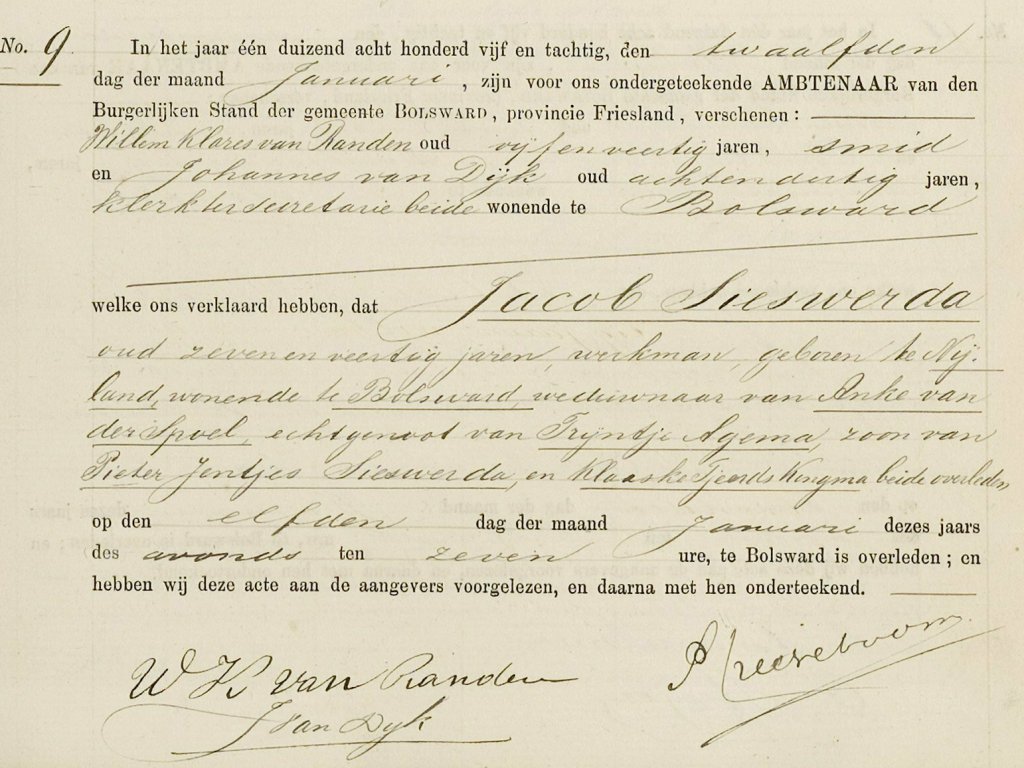 No. 9
In het jaar één duizend acht honderd vijf en tachtig, den twaalfden
dag der maand Januari, zijn voor ons ondergeteekende AMBTENAAR van den
Burgerlijken Stand der gemeente BOLSWARD, provincie Friesland, verschenen:
Willem Klazes van Randen oud vijfenveertig jaren, smid
en Johannes van Dijk oud achtendertig jaren,
klerk ter secretarie beide wonende te Bolsward
welke ons verklaard hebben, dat Jacob Sieswerda
oud zevenenveertig jaren, werkman, geboren te Nij-
land, wonende te Bolsward, weduwnaar van Anke van
der Spoel, echtgenoot van Trijntje Agema, zoon van
Pieter Jentjes Sieswerda, en Klaaske Tjeerds Kingma beide overleden,
op den elfden dag der maand Januari dezes jaars
des avonds ten zeven ure, te Bolsward is overleden; en
hebben wij deze acte aan de aangevers voorgelezen, en daarna met hen onderteekend.
W K van Randen
J van Dijk